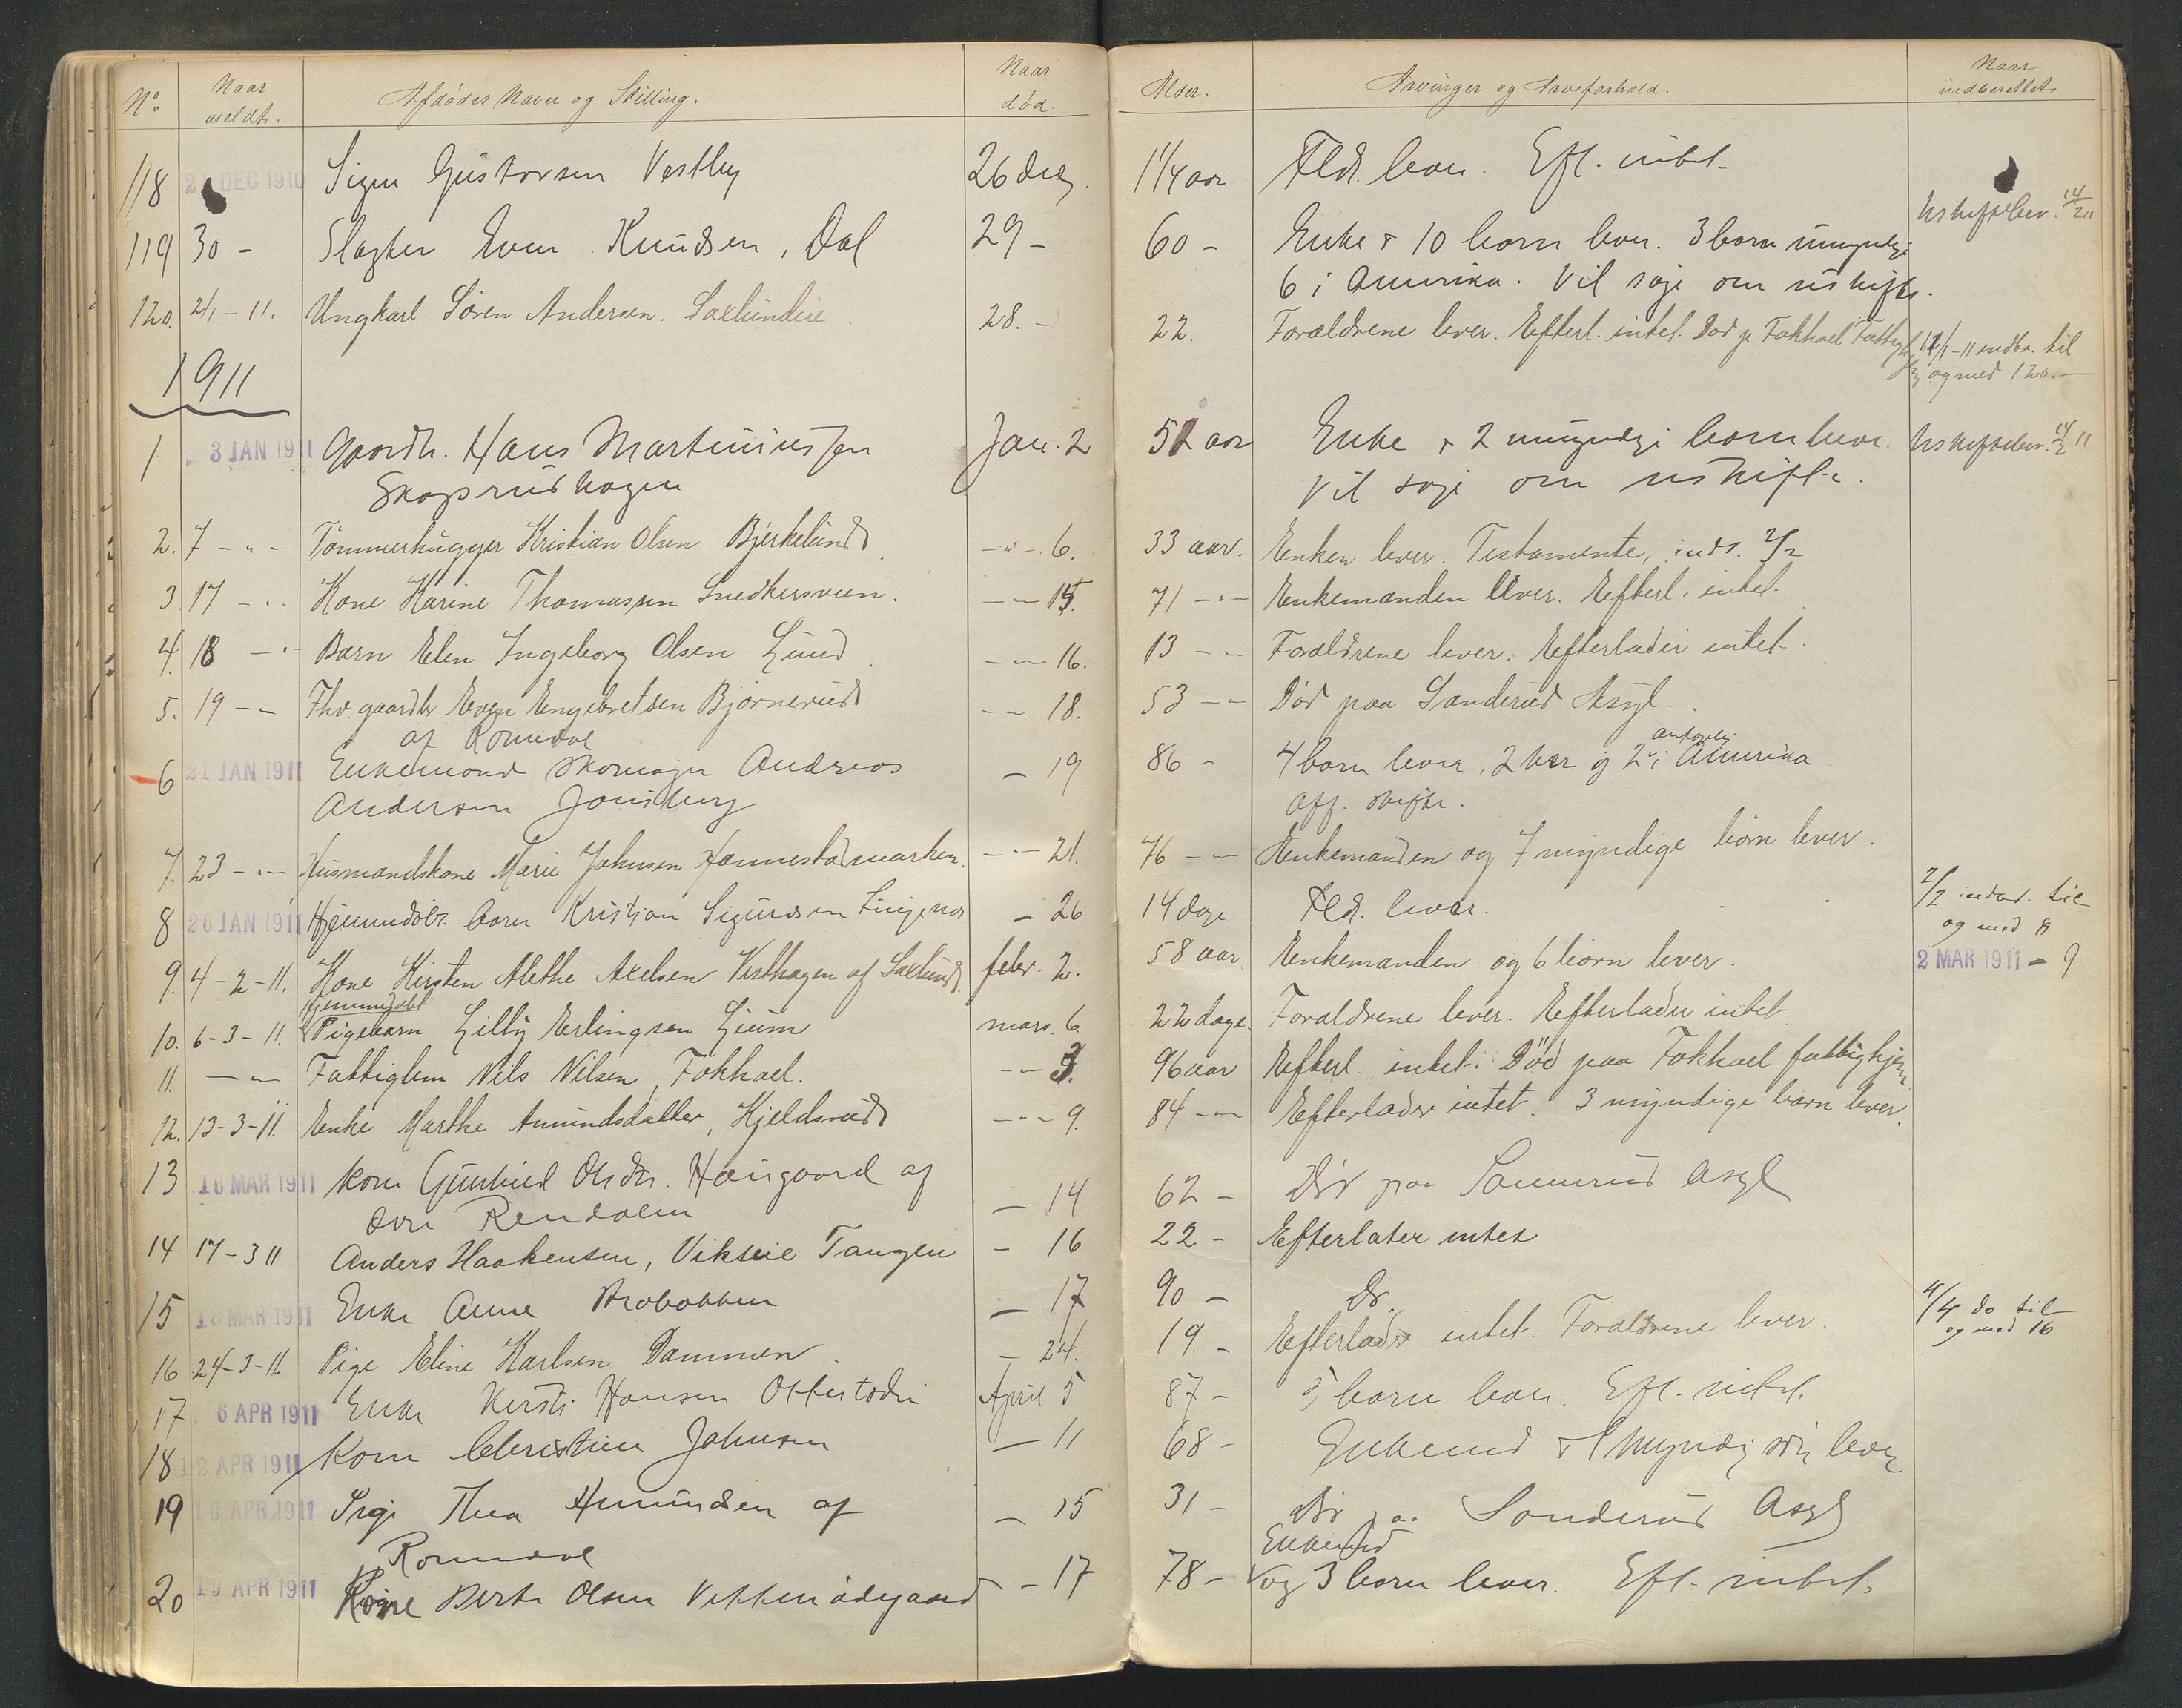 No. Naar meldt. Afdødes Navn og Stilling. Naar død. Alder. Arvinger og Arveforhold. Naar indberettet
118 DEC 1910 Sigur Gustavsen Vestby 26 dec. 1 1/4 aar Fldr. lever. Eft. intet
119 30 - Slagter Even Knudsen, Dal 29 - 60 - Enke + 10 barn lever. 3 barn umyndige Uskiftebev. 14/2 11
6 i Amerika. Vil søge om uskifte.
120. 2/1 - 11. Ungkarl Søren Andersen. Saxlundeie 28. - 22. Forældrene lever. Efterl. intet. Død p. Fokhoel Fattighjem 1/1 - 11 indbr. til
og med 120.
1911
1 3 JAN 1911 Gaardbr. Hans Martiniussen Jan. 2 52 aar Enke + 2 umyndige barn lever. Uskiftebev. 14/2 11
Skaprudhagen Vil søge om uskifte.
2. 7 - " - Tømmerhugger Kristian Olsen Bjerkelund - " - 6. 33 aar. Enken lever. Testamente, inds. 2/2
3. 17 - " - Kone Karine Thomassen Snedkersveen. - - 15. 71 - " - Enkemanden lever. Efterl. intet.
4. 18 - " - Barn Elen Ingeborg Olsen Lund - - 16. 13 - - Forældrene lever. Efterlader intet.
5. 19 - - Fhv. gaardbr. Even Engebretsen Bjørnerud - - 18. 53 - - Død paa Sanderud Asyl.
af Romedal
6 21 JAN 1911 Enkemand skomager Andreas - 19 86 - 4 barn lever, 2 her og 2 antagelig i Amerika
Andersen Jønsberg Off. skifte.
7. 23 - " - Husmandskone Marie Johnsen Hannestadmarken. - - 21. 76 - - Enkemanden og 7 myndige børn lever.
8 26 JAN 1911 Hjemmedøbt barn Kristian Sigurdsen - 26 14 dage Fldr. lever. 2/2 indbr. til
og med 8
9. 4 - 2 - 11. Kone Kirsten Alethe Axelsen Vesthagen af Saxlund. febr. 2. 58 aar Enkemanden og 6 børn lever. 2 MAR 1911 - 9
Hjemmedøbt
10. 6 - 3 - 11. Pigebarn Lilly Erlingsen Lium mars. 6. 22 dage. Forældrene lever. Efterlader intet
11. - - Fattiglem Nils Nilsen, Fokhoel. - - 3. 96 aar Efterl. intet. Død paa Fokhoel fattighjem
12. 13 - 3 - 11. Enke Marthe Amundsdatter, Kjeldsrud - - 9. 84 - - Efterlader intet. 3 myndige barn lever.
13 16 MAR 1911 Kone Gunhild Olsdtr. Haugaard af
Øvre Rendalen - 14 62 - Død paa Sanderud Asyl
14 17 - 3 11 Anders Haakensen, Vikseie Tangen - 16 22 - Efterlater intet
15 18 MAR 1911 Enke Anne Brobakken - 17 90 - Do. 4/4 do til
og med 16
16 24 - 3 - 11 Pige Eline Karlsen Dammen. - 24. 19. - Efterlader intet. Forældrene lever.
17 6 APR 1911 Enke Kersti Hansen April 5 87 - 5 barn lever. Eft. intet.
18 12 APR 1911 Kone Christine Johnsen - 11 68 - Enkemd. + 1 myndig søn lever
19 18 APR 1911 Pige Thea Amundsen af - 15 31 - Død paa Sanderud Asyl
Romedal Enkemd
20 19 APR 1911 Kone Berte Olsen Vikkenødegaard - 17 78 - og 3 barn lever. Eft. intet.